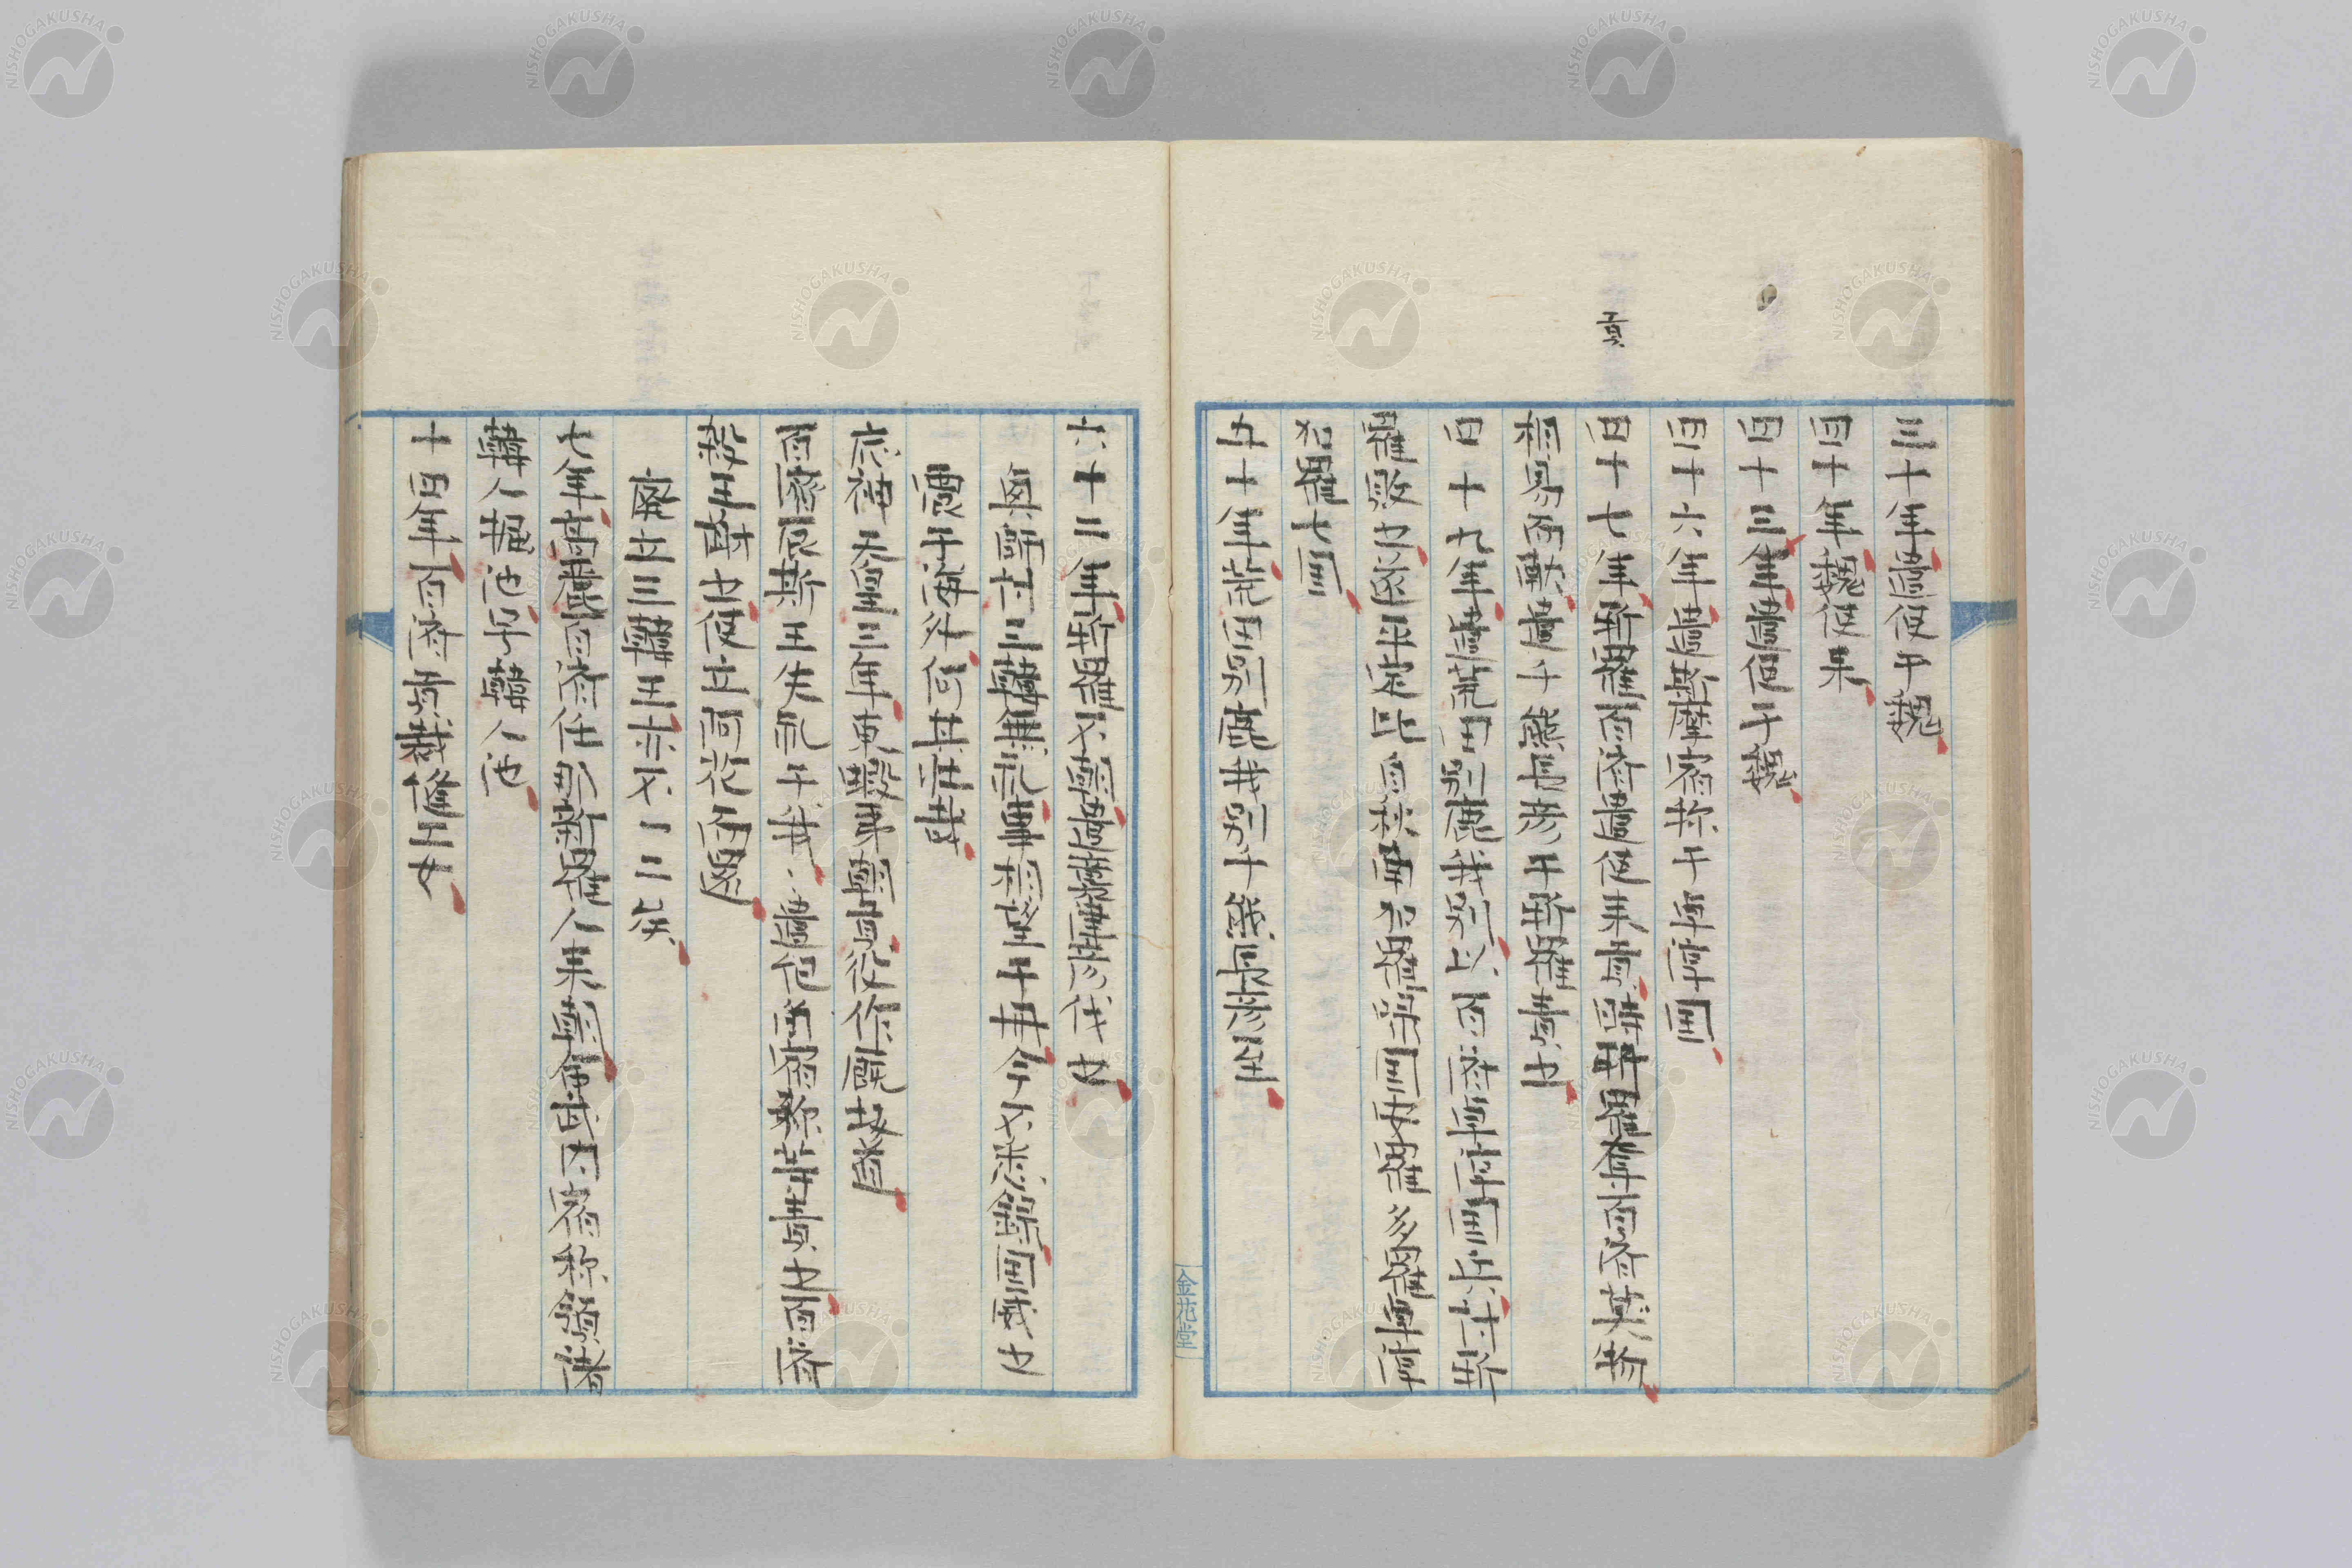 貢
三十年遣使于魏
四十年魏使来
四十三年遣使于魏
四十六年遣斯摩宿祢于卓淳国
四十七年新羅百済遣使来貢時新羅奪百済貢物
相易而献遣千熊長彦于新羅責之
四十九年遣荒田別鹿我別以百済卓淳国兵討新
羅敗之遂平定比自㶱 加羅 国安羅多羅卓淳
加羅七国
五十年荒田別鹿我別千熊長彦至
六十二年新羅不朝遣襲津彦伐之
今不悉録国威之
震于海外何其壮哉
応神天皇三年東蝦夷朝貢役作厩坂道
百済辰斯王失礼于我遣紀角宿祢等責之百済
殺王謝之使立阿花而還
廃立三韓王
七年高麗百済任那新羅人来朝使武内宿祢領諸
韓人掘池号韓人池
十四年百済貢裁縫工女
金花堂
NISHOGAKUSHA